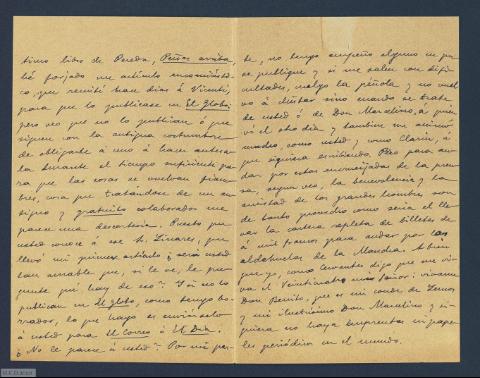 timo libro de Pereda, Peñas arriba,
hé forjado un artículo encomiásti-
co, que remití hace dias á Vicenti,
para que lo publicase en El Globo;
pero veo que no lo publican ó que
siguen con la antigua costumbre
de obligarle á uno á hacer antesa-
la durante el tiempo suficiente pa-
ra que las cosas se vuelvan fiam-
bres, cosa que tratándose de un an-
tiguo y gratuito colaborador me
parece una descortesía. Puesto que
usted conoce á ese Sr. Linares, que
llevó mi primer artículo ¿será usted
tan amable que, si le ve, le pre-
gunte qué hay de eso? Y si no lo
publican en El Globo, como tengo bo-
rrador, lo que hago es enviárselo
á usted para El Correo ó El Dia.
¿No le parece á usted? Por mi par-
te, no tengo empeño alguno en que
se publique y si me salen con difi-
cultades, cuelgo la péñola y no vuel-
vo á chistar sino cuando se trate
de usted ó de Don Marcelino, á quien
ví el otro dia y tambien me animó
mucho, como usted y como Clarín, á
que siguiera escribiendo. Pero para an-
dar por estas encrucijadas de la pren-
sa, segun veo, la benevolencia y la
amistad de los grandes hombres son
de tanto provecho como sería el lle-
var la cartera repleta de billetes de
á mil francos para andar por las
aldehuelas de la Mancha. A bien
que yo, como Cervantes digo que me vi-
va el Veinticuatro mis Señor: vivame
Don Benito, que es mi conde de Lemos,
y mi ilustrísimo Don Marcelino y si-
quiera no haya imprentas ni pape-
les periódicos en el mundo.